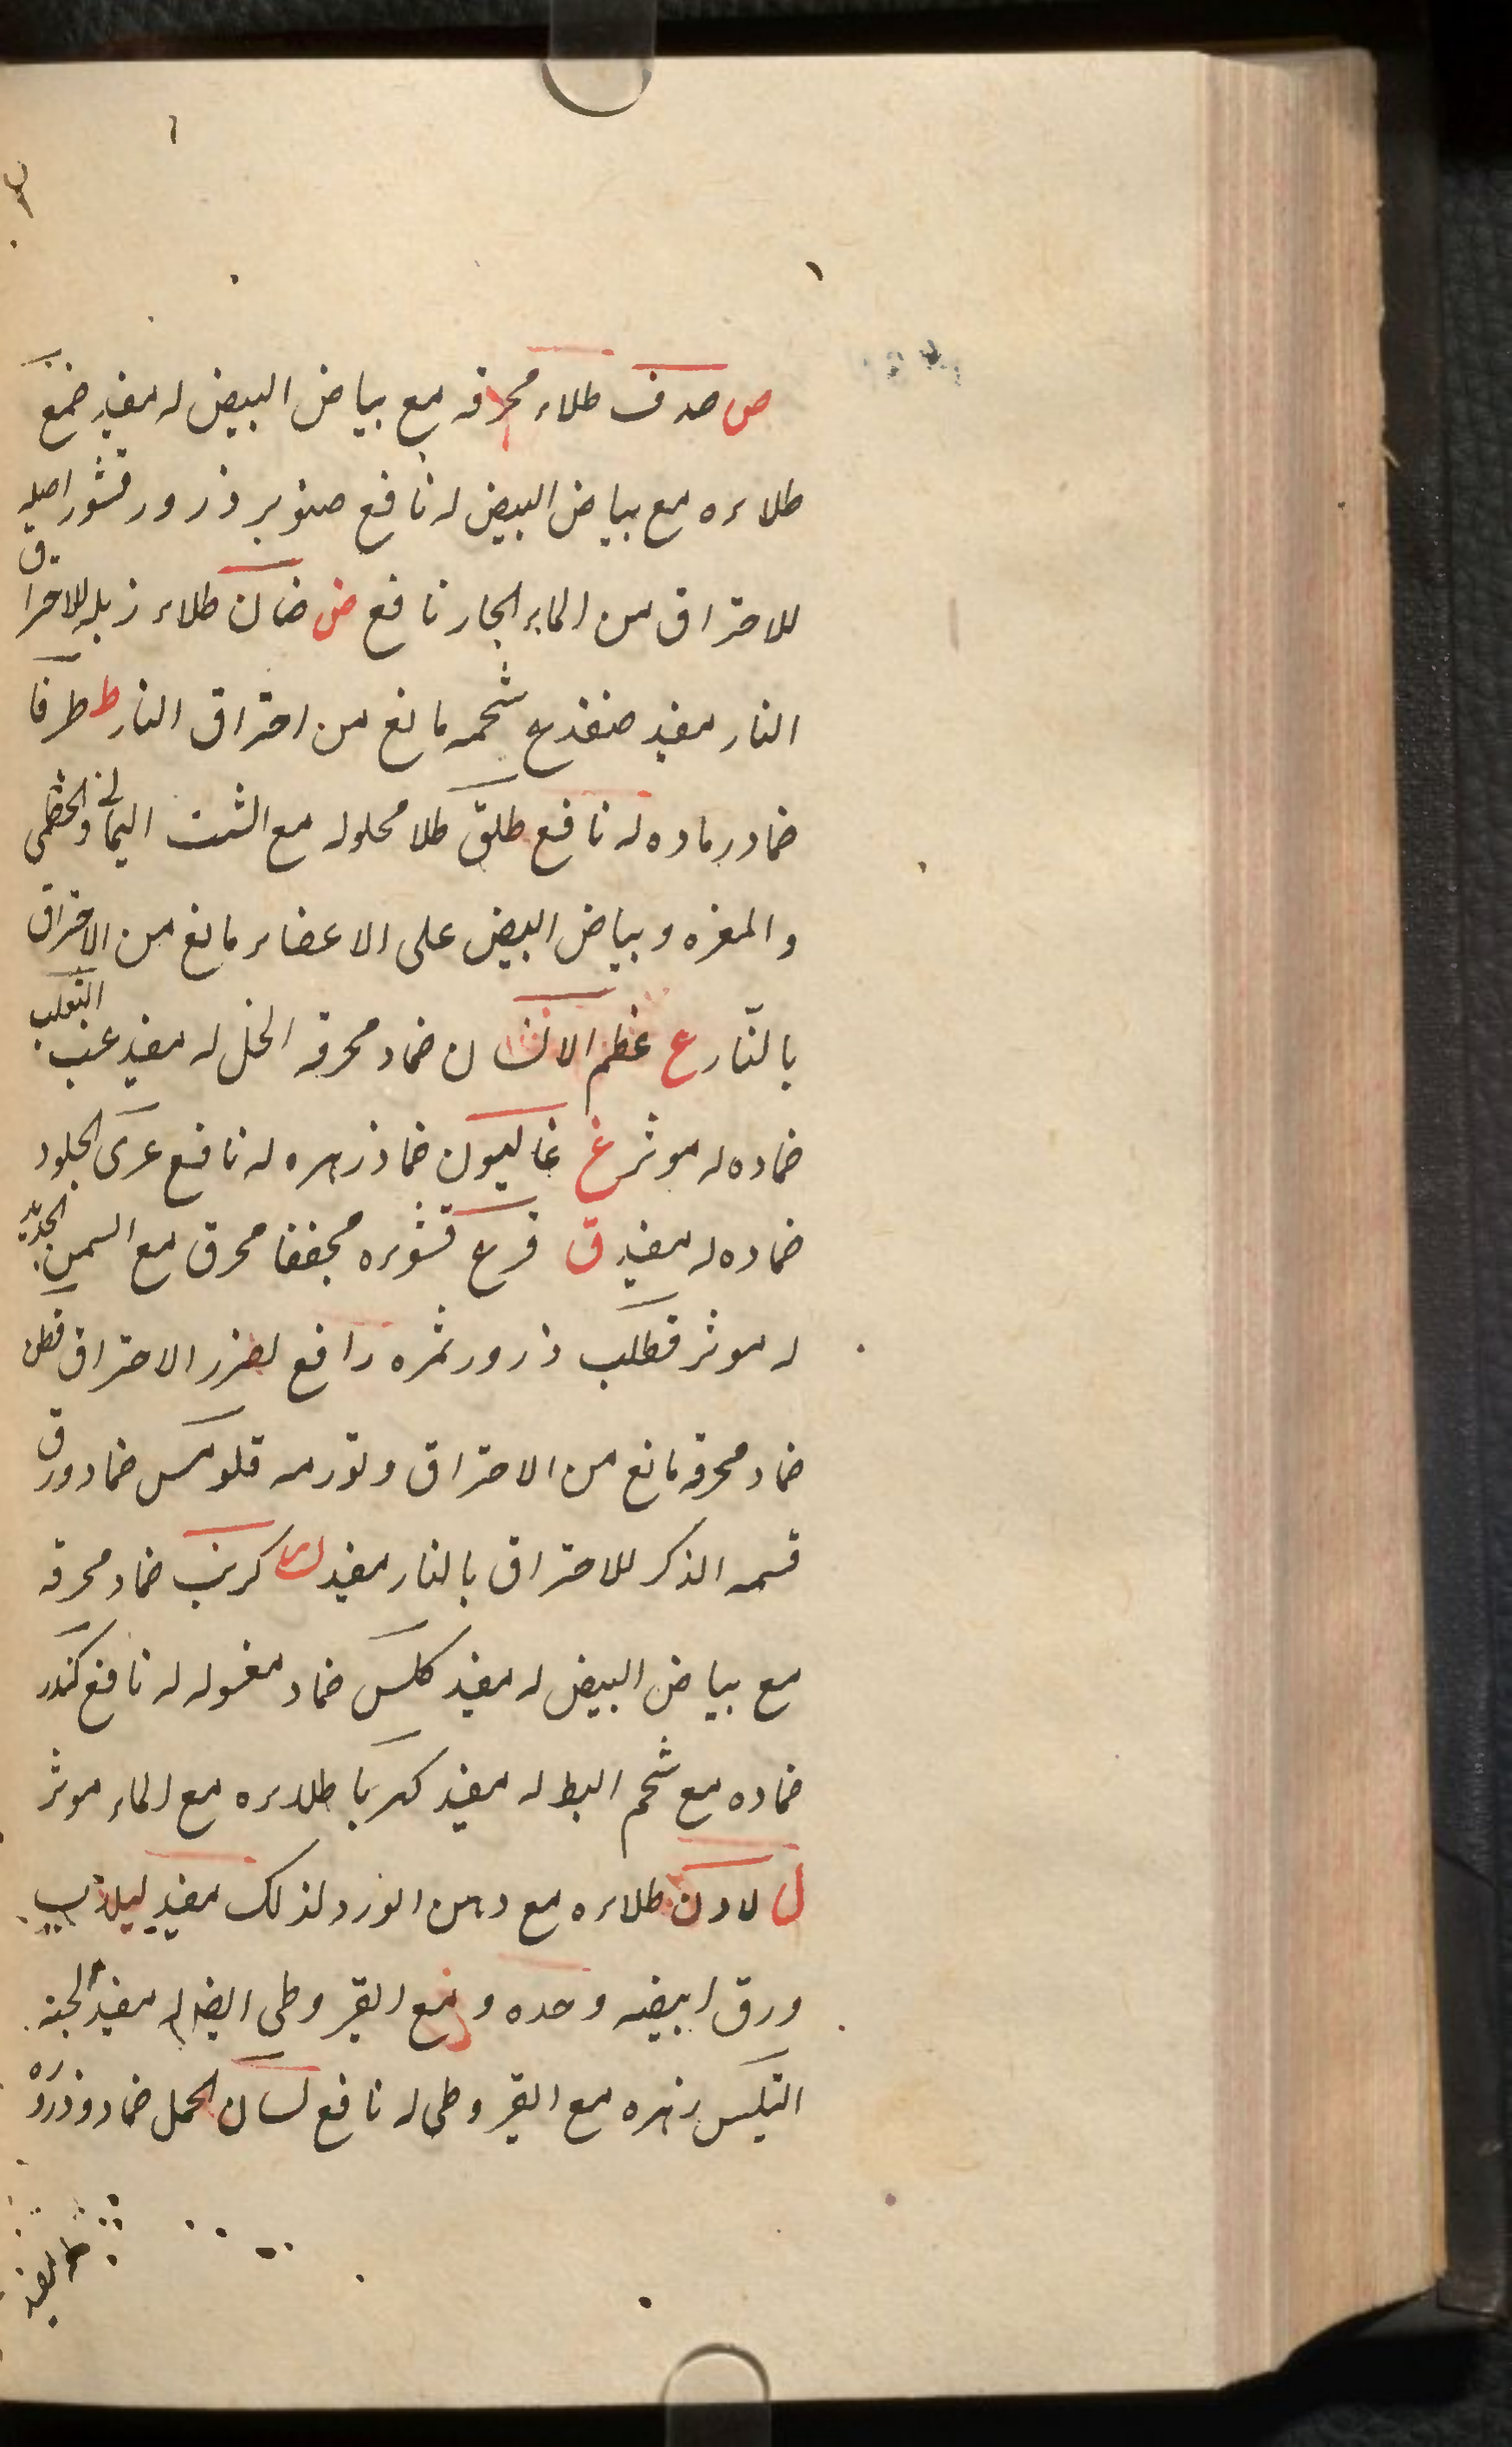 ص صدف طلاء محرقه مع بياض البيض له مفيد صمغ
طلاءه مع بياض البيض له نافع صنوبر ذرور قشور اصله
للاحتراق من الماء الحار نافع ض ضان طلاء زبله للاحتراق
النار مفيد ضفدع شحمه مانع من احتراق النار ط طرفا
ضماد رماده له نافع طلق طلا محلوله مع الشب اليماني والخطمى
والمغره وبياض البيض على الاعضاء مانع من الاحتراق
بالنّار ع عظم الانسان ضماد محرقه الخل له مفيد عنب الثعلب
ضماده له موثر غ غاليون ضماد زهره له نافع غرى الجلود
ضماده له مفيد ق قرع قشوره مجففا محرق مع السمن
له موثر قطلب ذرور ثمره رافع لضرر الاحتراق قطن
ضماد محرقه مانع من الاحتراق وتورمه قلومس ضماد ورق
قسمه الذكر للاحتراق بالنار مفيد ك كرنب ضماد محرقه
مع بياض البيض له مفيد كلس ضماد مغسوله له نافع كندر
ضماده مع شحم البط له مفيد كهربا طلاءه مع الماء موثر
ل لادن طلاءه مع دهن الورد لذلك مفيد لبلاب
ورق ابيضه وحده ومع القيروطى ايضا له مفيد
زهره مع القيروطى له نافع لسان الحمل ضماد وذرور
له مفيد